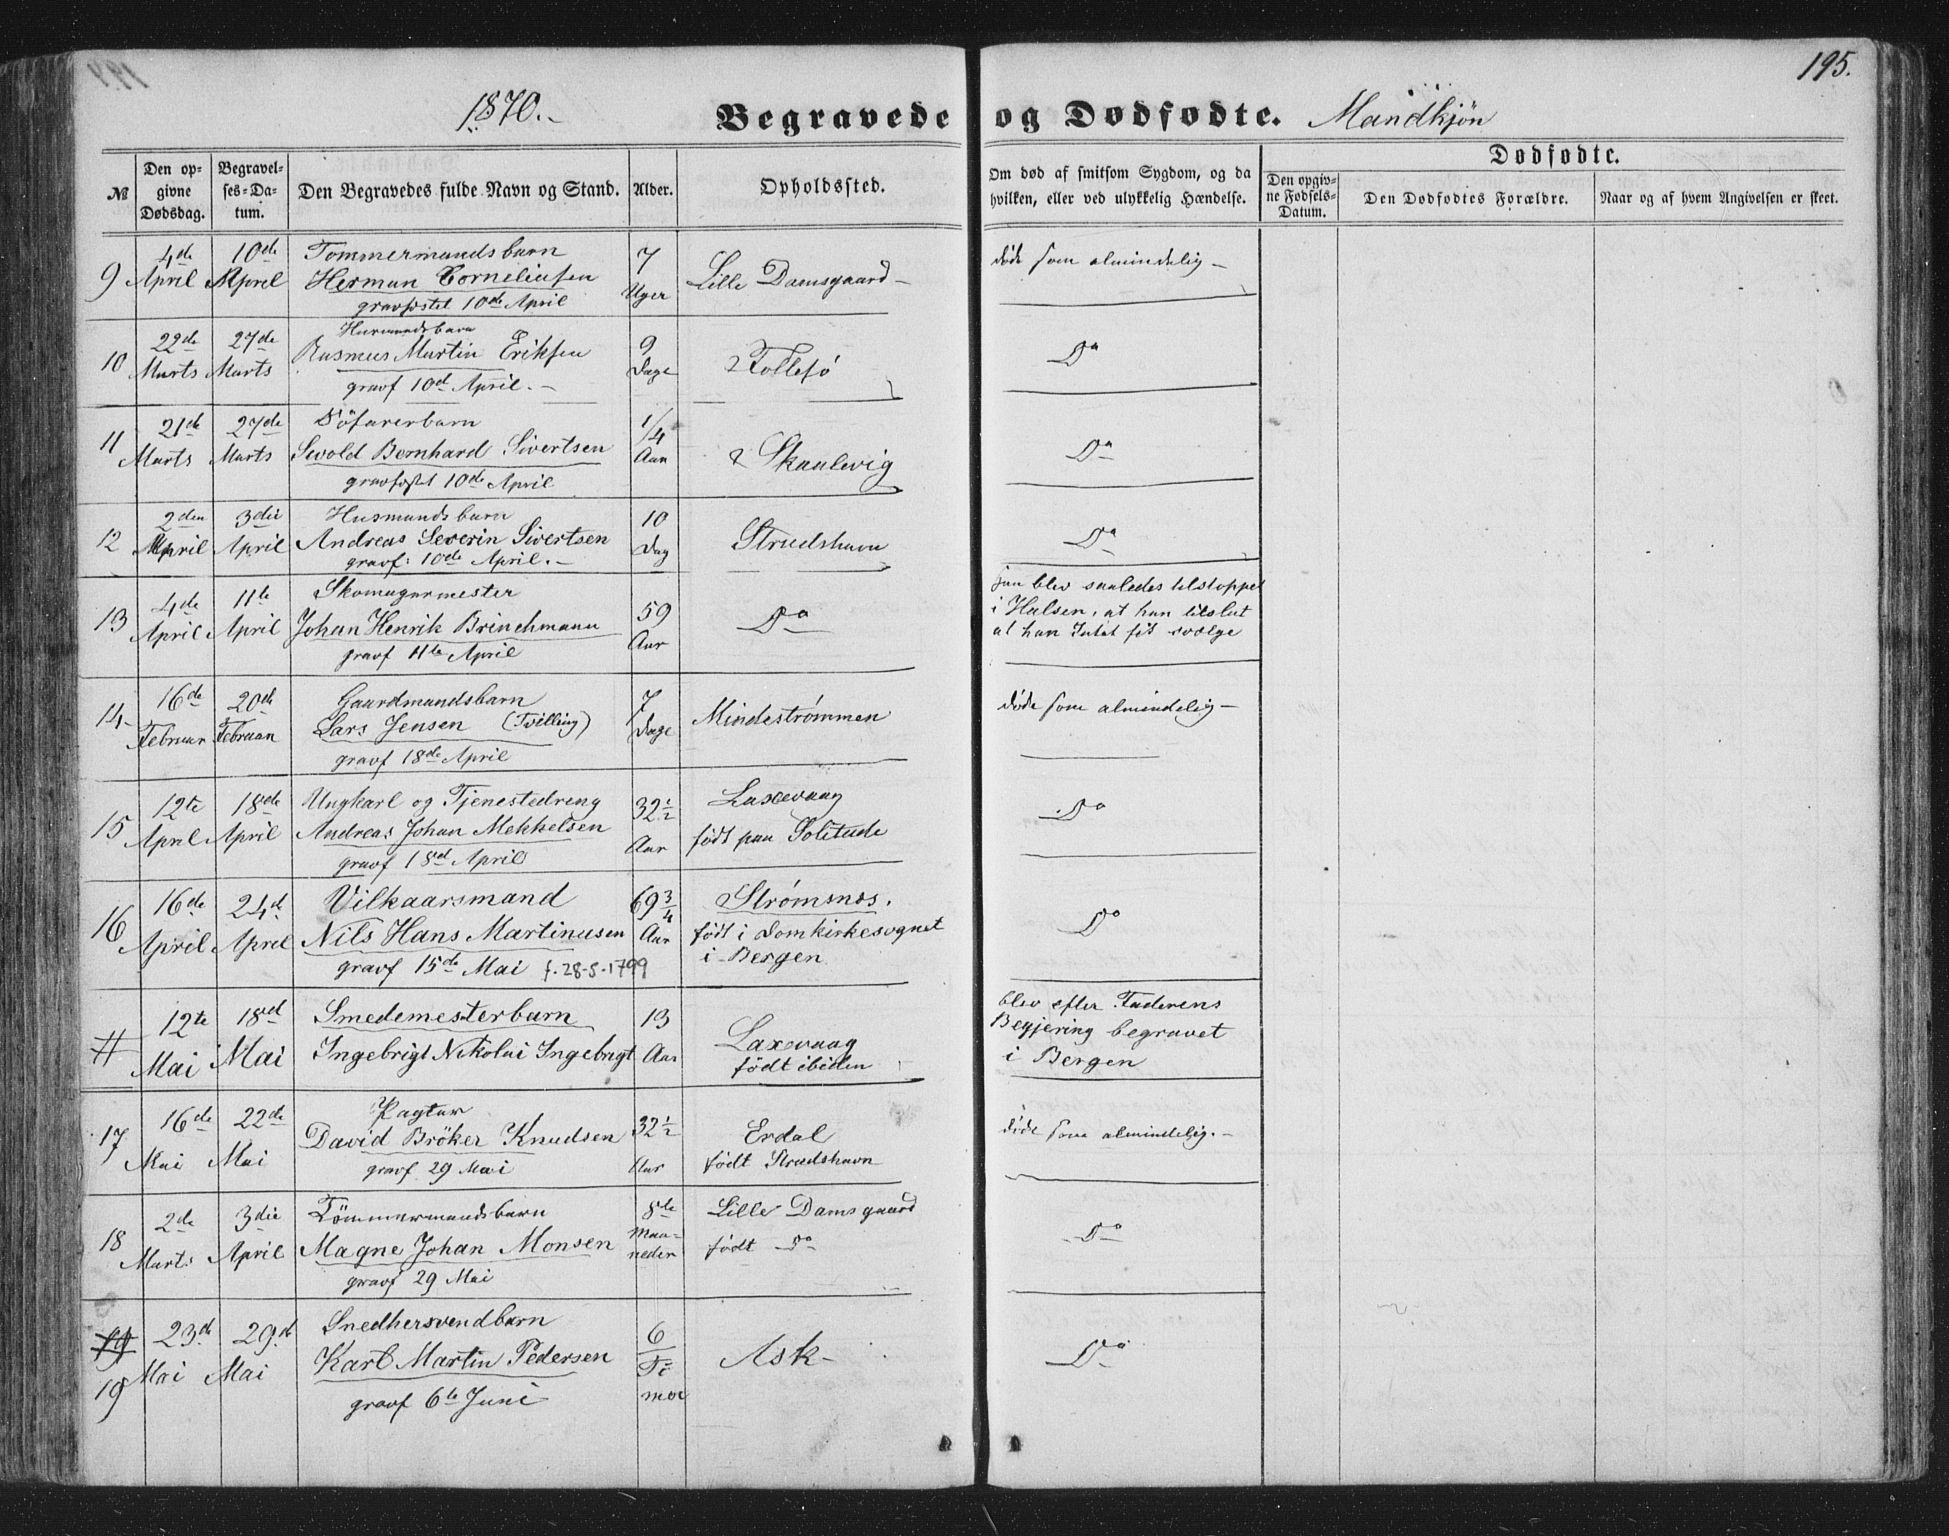 195.
1870.
Begravede og Dødfødte. Mandkjøn
№
Den opgivne Dødsdag.
Begravelses-Datum.
Den Begravedes fulde Navn og Stand.
Alder.
Opholdssted.
Om død af smitsom Sygdom, og da hvilken, eller ved ulykkelig Hændelse.
Dødfødte.
Den opgivne Fødsels-Datum.
Den Dødfødtes Forældre.
Naar og af hvem Angivelsen er skeet.
9 4de April 10de April Tømmermandsbarn 7 Uger Lille Damsgaard døde som almindelig
Herman Corneliusen
gravfæstet 10de April
10 22de Marts 27de Marts Husmandsbarn 9 Dage Follesø Do
Rasmus Martin Eriksen
gravf 10de April.
11 21de Marts 27de Marts Söfarerbarn 1/4 Aar Skaalevig Do
Sivold Bernhard Sivertsen
gravfæstet 10de April
12 2den April 3die April Husmandsbarn 10 Dag Strudshavn Do
Andreas Severin Sivertsen
gravf: 10de April.
13 4de April 11te April Skomagermester 59 Aar Do
Johan Henrik Brinchmann
gravf 11te April
han blev saaledes tilstoppet
i Halsen, at han tilslut
at han Intet fik svælge
14 16de Februar 20de Februar Gaardmandsbarn 7 Dage Mindestrømmen døde som almindelig
Lars Jensen (Tvilling)
gravf 18de April
15 12te April 18de April Ungkarl og Tjenestedreng 32 1/2 Aar Laxevaag Do
Andreas Johan Mekkelsen født paa Solitude
gravf 18de April
16 16de April 24de April Vilkaarsmand 69 3/4 Aar Strømsnes. Do
Nils Hans Martinusen født i Domkirkesognet
gravf 15de Mai f. 28-5-1799 i Bergen
# 12te Mai 18de Mai Smedemesterbarn 13 Aar Laxevaag
Ingebrigt Nikolai Ingebrigt født ibiden
blev efter Faderens
Begjering begravet
i Bergen
17 16de Mai 22de Mai 32 1/2 Aar Erdal døde som almindelig.
David Bröker Knudsen født Strudshavn
gravf 29 Mai
18 2de Marts 3die April Tömmermandsbarn 8de Maaneder Lille Damsgaard Do
Magne Johan Monsen født Do
gravf 29 Mai
19 23de Mai 29de Mai Snedkersvendbarn 6 Timer Ask Do
19 Karl Martin Pedersen
gravf 6te Juni